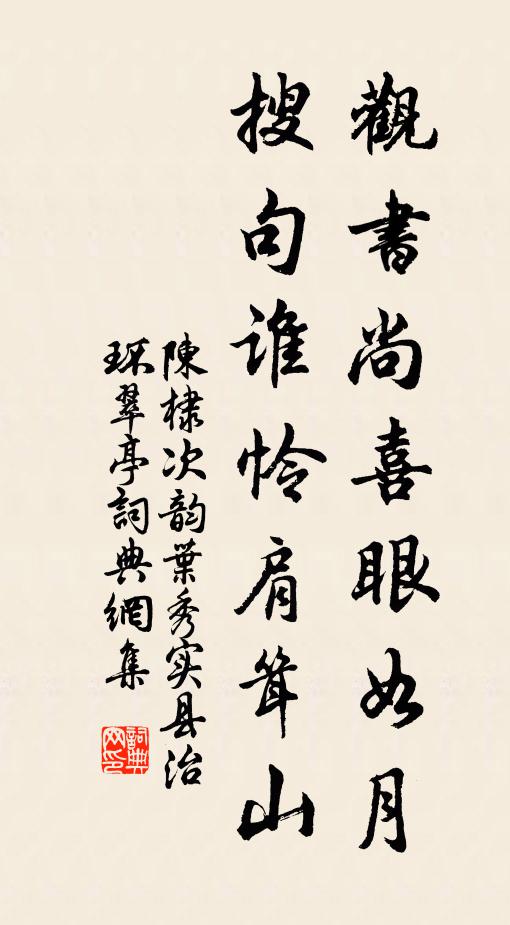 觀書尚喜眼如月
搜句誰怜肩耸山
陳棣次韵葉秀实县治
环翠亭詞典網集
詞典
网印